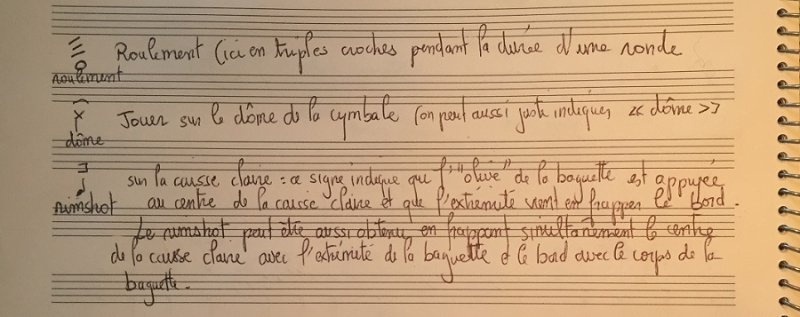 Roulement (ici en triples croches pendant la durée d'une ronde
roulement
Jouer sur le dôme de la cymbale (on peut aussi juste indiquer << dôme >>)
dôme
sur la caisse claire : ce signe indique que l'"olive" de la baguette est appuyée
au centre de la caisse claire et que l'extrémité vient en frapper le bord.
rimshot
Le rimshot peut être aussi obtenu en frappant simultanément le centre
de la caisse claire avec l'extrémité de la baguette et le bord avec le corps de la
baguette.